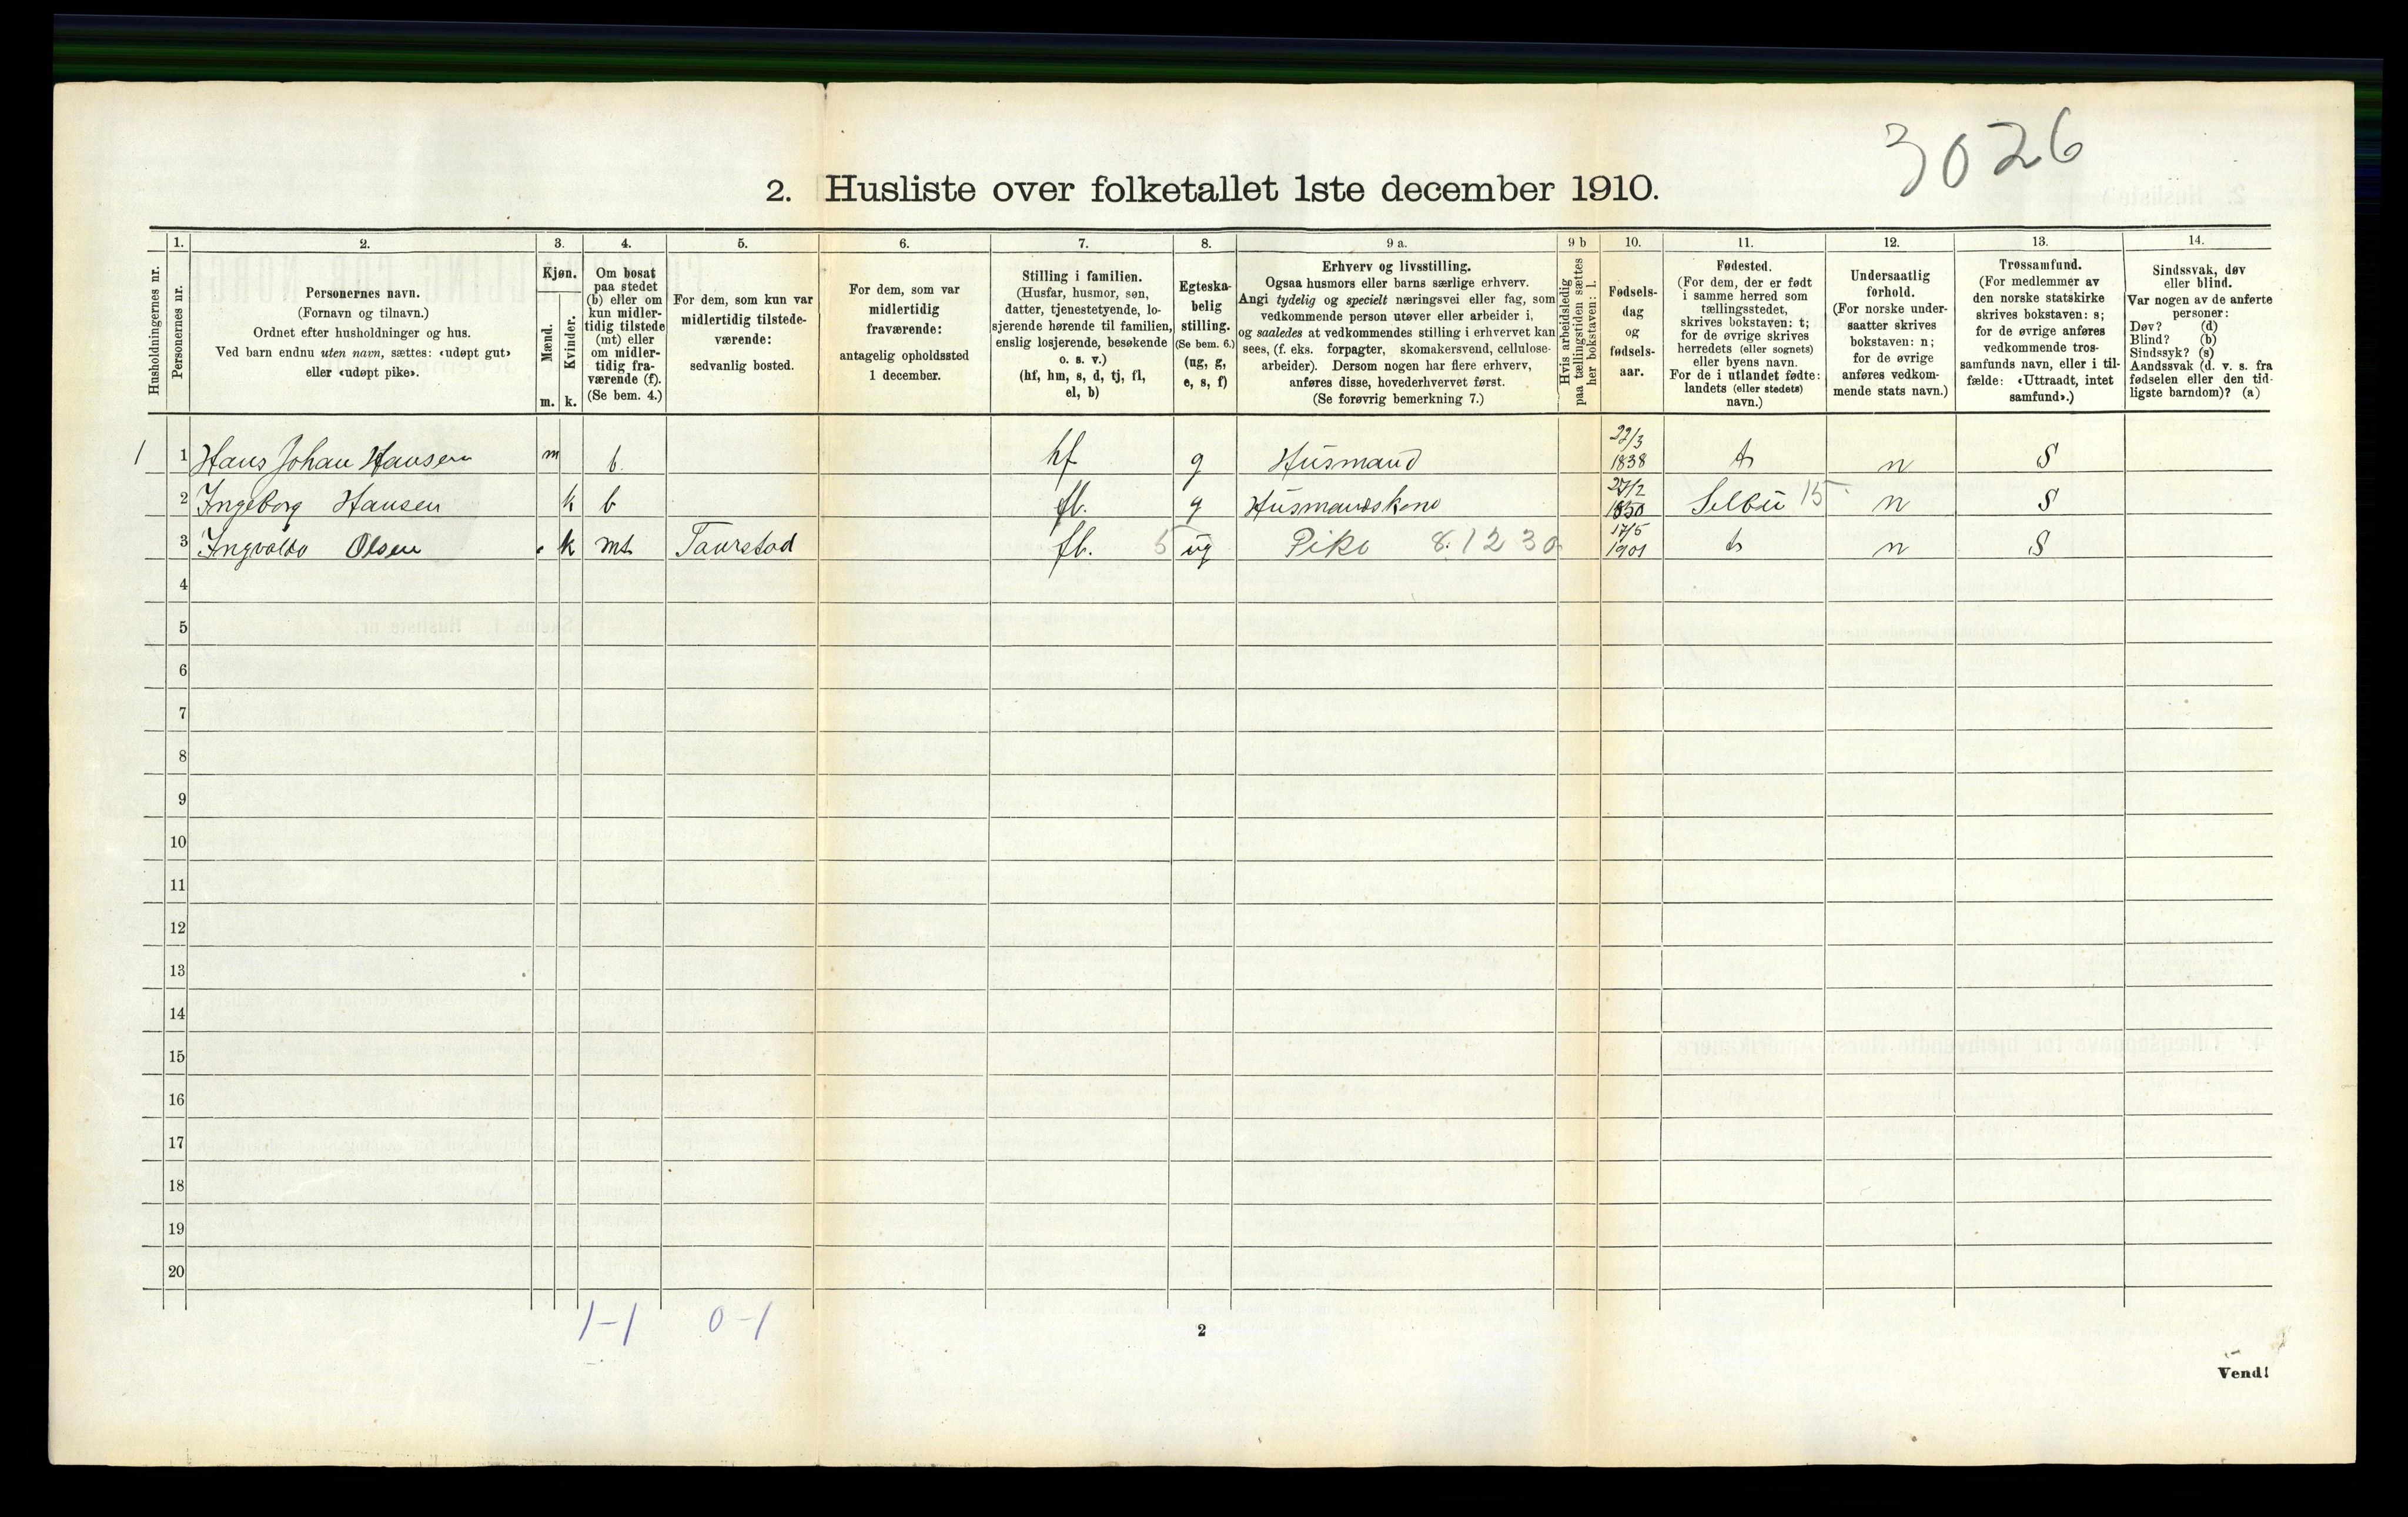 3026
2. Husliste over folketallet 1ste december 1910.
Husholdningernes nr.
1. Personernes nr.
2. Personernes navn.
(Fornavn og tilnavn.)
Ordnet efter husholdninger og hus.
Ved barn endnu uten navn, sættes: «udøpt gut»
eller «udøpt pike».
3. Kjøn.
Mænd. Kvinder.
m. k.
4. Om bosat
paa stedet
(b) eller om
kun midler-
tidig tilstede
(mt) eller
om midler-
tidig fra-
værende (f).
(Se bem. 4.)
5. For dem, som kun var
midlertidig tilstede-
værende:
sedvanlig bosted.
6. For dem, som var
midlertidig
fraværende:
antagelig opholdssted
1 december.
7. Stilling i familien.
(Husfar, husmor, søn,
datter, tjenestetyende, lo-
sjerende hørende til familien,
enslig losjerende, besøkende
o. s. v.)
(hf, hm, s, d, tj, fl,
el, b)
8. Egteska-
belig
stilling.
(Se bem. 6.)
(ug, g,
e, s, f)
9 a. Erhverv og livsstilling.
Ogsaa husmors eller barns særlige erhverv.
Angi tydelig og specielt næringsvei eller fag, som
vedkommende person utøver eller arbeider i,
og saaledes at vedkommendes stilling i erhvervet kan
sees, (f. eks. forpagter, skomakersvend, cellulose-
arbeider). Dersom nogen har flere erhverv,
anføres disse, hovederhvervet først.
(Se forøvrig bemerkning 7.)
9 b Hvis arbeidsledig
paa tællingstiden sættes
her bokstaven: l.
10. Fødsels-
dag
og
fødsels-
aar.
11. Fødested.
(For dem, der er født
i samme herred som
tællingsstedet,
skrives bokstaven: t;
for de øvrige skrives
herredets (eller sognets)
eller byens navn.
For de i utlandet fødte:
landets (eller stedets)
navn.)
12. Undersaatlig
forhold.
(For norske under-
saatter skrives
bokstaven: n;
for de øvrige
anføres vedkom-
mende stats navn.)
13. Trossamfund.
(For medlemmer av
den norske statskirke
skrives bokstaven: s;
for de øvrige anføres
vedkommende tros-
samfunds navn, eller i til-
fælde: «Uttraadt, intet
samfund».)
14. Sindssvak, døv
eller blind.
Var nogen av de anførte
personer:
Døv? (d)
Blind? (b)
Sindssyk? (s)
Aandssvak (d. v. s. fra
fødselen eller den tid-
ligste barndom)? (a)
1 1 Hans Johan Hansen m b. hf g Husmand 22/3 1838 t n S
2 Ingeborg Hansen k b fl. g Husmandskone 27/2 1850 Selbu 15 n S
3 Ingvalda Olsen k mt Taurstad fl. 5 ug Pike 8.1230 17/5 1901 t n S
4
5
6
7
8
9
10
11
12
13
14
15
16
17
18
19
20
1-1 0-1
2
Vend!